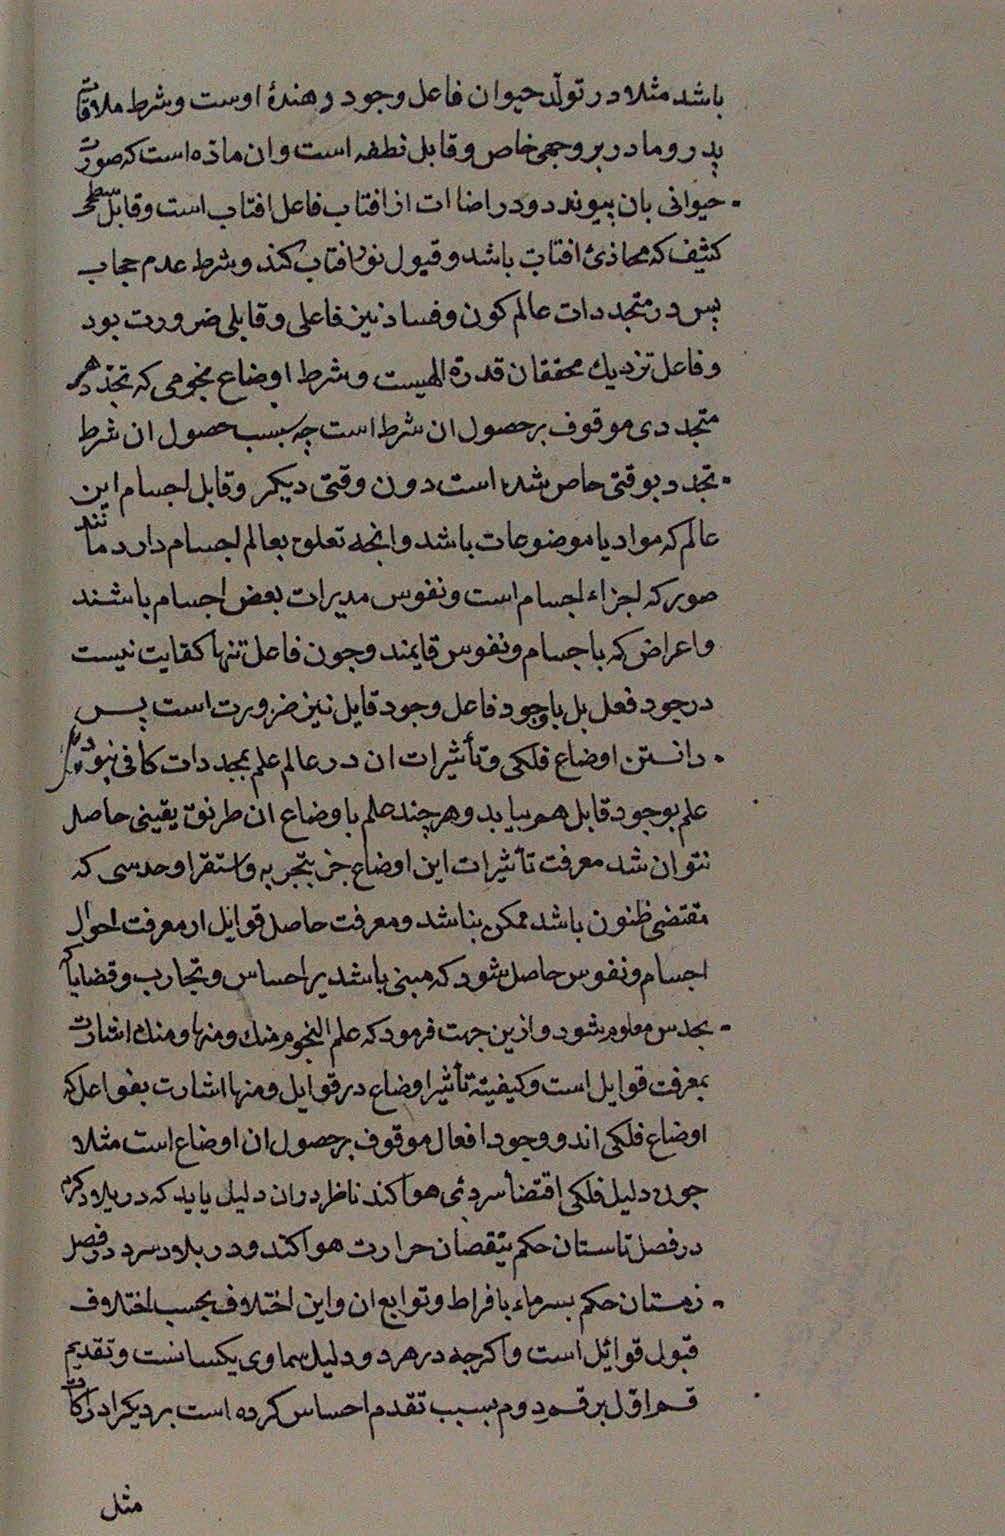 باشد مثلا در تولد حیوان فاعل وجود دهندهٔ اوست و شرط ملاقات
پدر و مادر بر وجهی خاص و قابل نطفه است و ان ماده است که صورت
حیوانی بان پیوندد و در اضاات از افتاب فاعل افتاب است و قابل سطح
کثیف که محاذئ افتاب باشد و قبول نور افتاب کند و شرط عدم حجاب
پس در متجددات عالم کون و فساد نیز فاعلی و قابلی ضرورت بود
و فاعل نزدیک محققان قدرة الهیست و شرط اوضاع نجومی که تجدد هر
متجددی موقوف بر حصول ان شرط است چه بسبب حصول ان شرط
تجدد بوقتی خاص شده است دون وقتی دیکر و قابل اجسام این
عالم که مواد یا موضوعات باشد و انچه تعلق بعالم اجسام دارد مانند
صور که اجزاء اجسام است و نفوس مدبرات بعض اجسام باشند
و اعراض که باجسام و نفوس قایمند و چون فاعل تنها کفایت نیست
در وجود فعل بل با وجود فاعل وجود قابل نیز ضرورت است پس
دانستن اوضاع فلکی و تأثیرات ان در عالم علم بمجددات کافی نبود بلکه
علم بوجود قابل هم بباید و هر چند علم باوضاع ان طریق یقینی حاصل
نتوان شد معرفت تأثیرات این اوضاع جز بتجربه و استقرا و حدسی که
مقتضی ظنون باشد ممکن نباشد و معرفت حاصل قوابل از معرفت احوال
اجسام و نفوس حاصل شود که مبنی باشد بر احساس و تجارب و قضایا که
بحدس معلوم شود و ازین جهت فرمود که علم النجوم منك و منها و منك اشارت
بمعرفت قوابل است و کیفیتة تأثیر اوضاع در قوابل و منها اشارت بفواعل که
اوضاع فلکی اند و وجود افعال موقوف بر حصول ان اوضاع است مثلا
چون دلیل فلکی اقتضأ سردئی هوا کند ناظر در ان دلیل باید که در بلاد کرم
در فصل تاستان حکم بنقصان حرارت هوا کند و در بلاد سرد در فصل
زمستان حکم بسرماء بافراط و توابع ان و این اختلاف بحسب اختلاف
قبول قوابل است و اکرچه در هر دو دلیل سماوی یکسانست و تقدیم
قسم اول بر قسم دوم بسبب تقدم احساس کرده است بر دیکر ادراکات
مثل